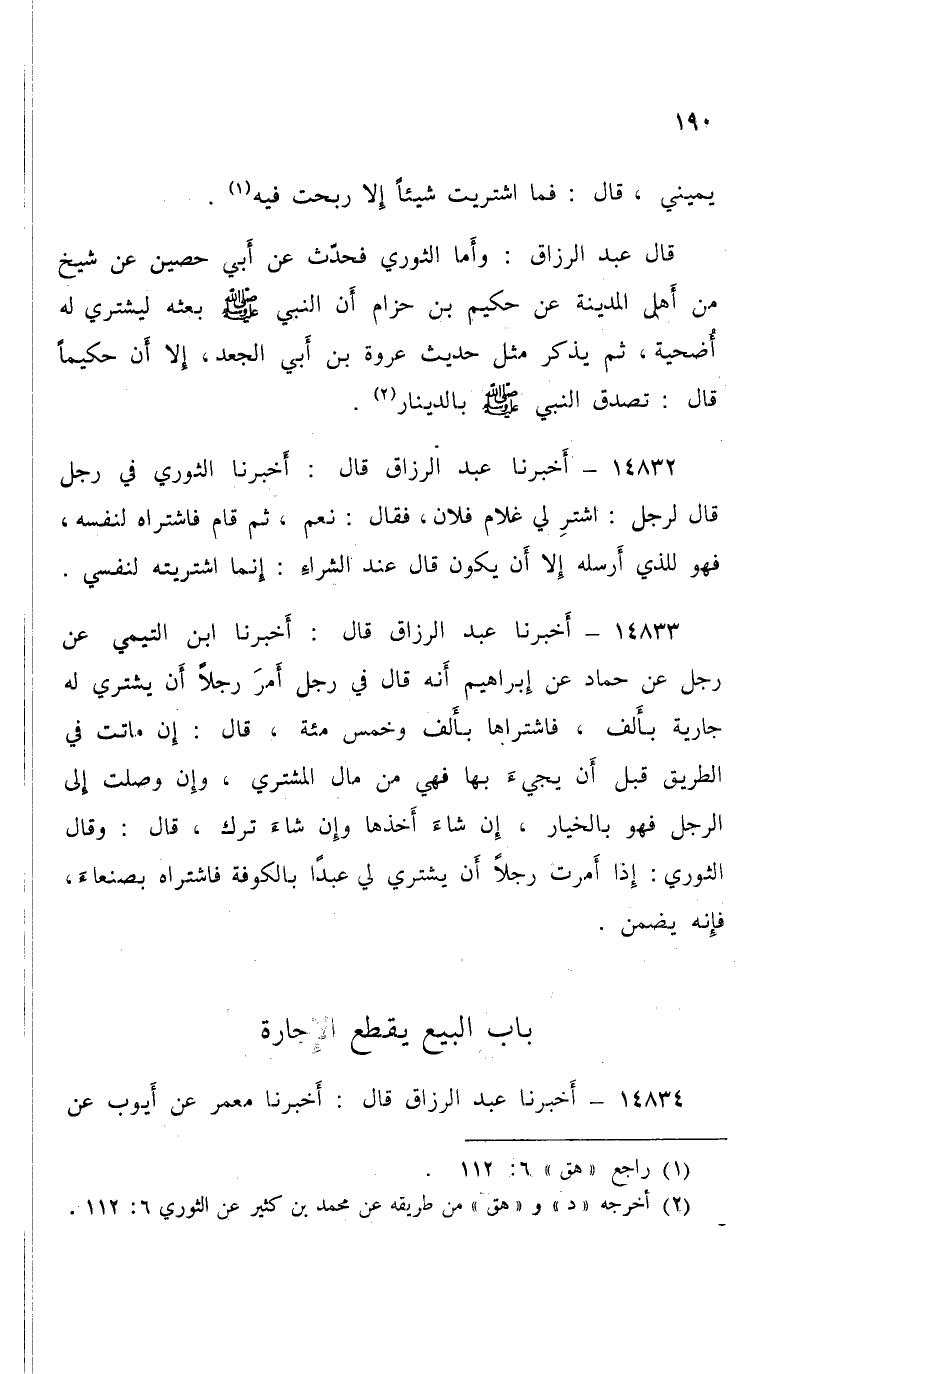 ١٩٠
يميني ، قال : فما اشتريت شيئاً إلا ربحت فيه(١) .
قال عبد الرزاق : وأما الثوري فحدّث عن أبي حصين عن شيخ
من أهل المدينة عن حكيم بن حزام أن النبي ﷺ بعثه ليشتري له
أُضحية ، ثم يذكر مثل حديث عروة بن أبي الجعد ، إلا أن حكيماً
قال : تصدق النبي ﷺ بالدينار(٢) .
١٤٨٣٢ – أخبرنا عبد الرزاق قال : أخبرنا الثوري في رجل
قال لرجل : اشترِ لي غلام فلان ، فقال : نعم ، ثم قام فاشتراه لنفسه ،
فهو للذي أرسله إلا أن يكون قال عند الشراء : إنما اشتريته لنفسي .
١٤٨٣٣ – أخبرنا عبد الرزاق قال : أخبرنا ابن التيمي عن
رجل عن حماد عن إبراهيم أنه قال في رجل أمرَ رجلاً أن يشتري له
جارية بألف ، فاشتراها بألف وخمس مئة ، قال : إن ماتت في
الطريق قبل أن يجيء بها فهي من مال المشتري ، وإن وصلت إلى
الرجل فهو بالخيار ، إن شاء أخذها وإن شاء ترك ، قال : وقال
الثوري : إذا أمرت رجلاً أن يشتري لي عبدًا بالكوفة فاشتراه بصنعاء ،
فإنه يضمن .
باب البيع يقطع الإجارة
١٤٨٣٤ – أخبرنا عبد الرزاق قال : أخبرنا معمر عن أيوب عن
(١) راجع « هق » ٦: ١١٢ .
(٢) أخرجه « د » و « هق » من طريقه عن محمد بن كثير عن الثوري ٦: ١١٢ .